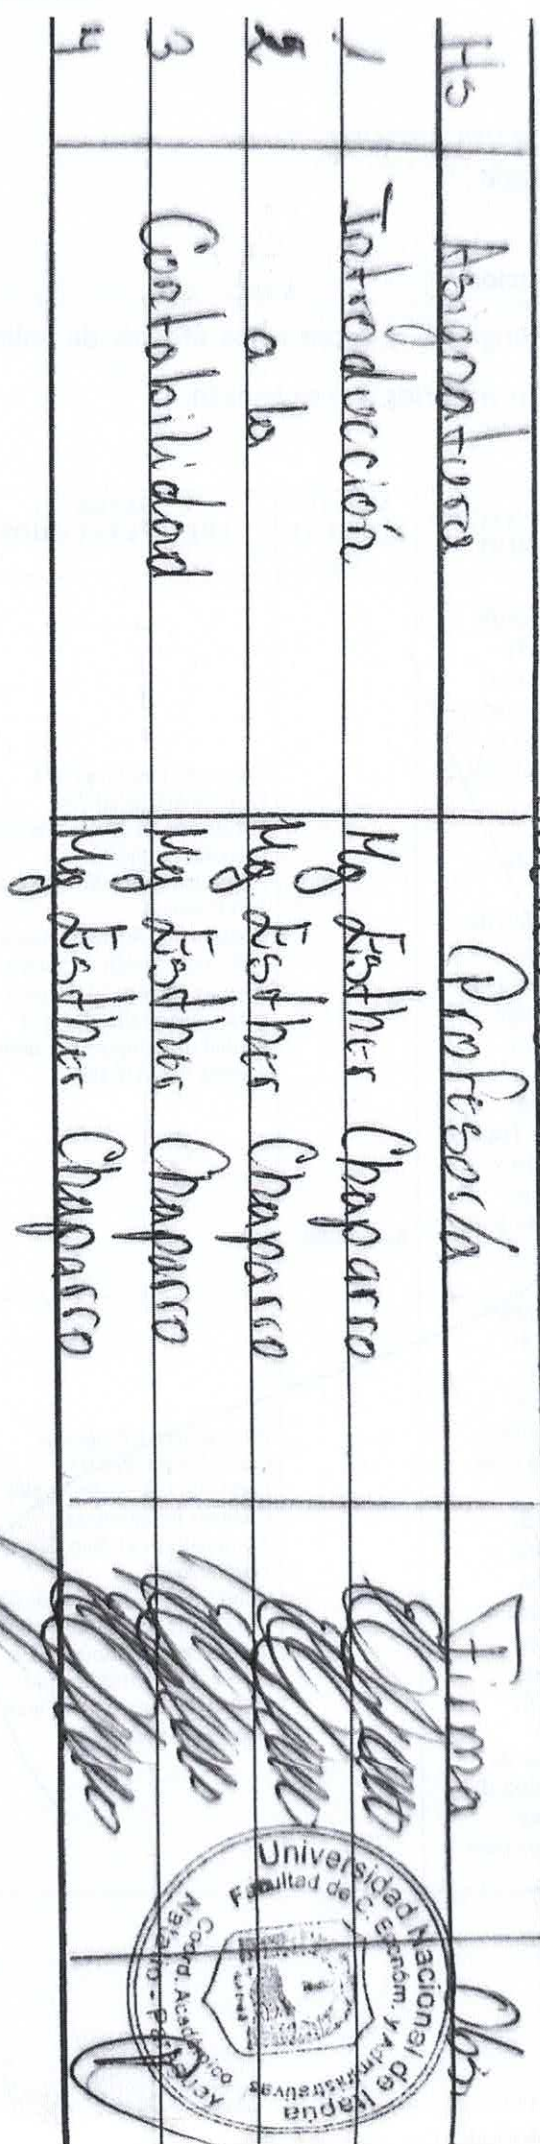 Hs Asignatura Profesor/a Firma Obs
1 Introducción Mg Esther Chaparro
2 a la Mg Esther Chaparro
3 Contabilidad Mg Esther Chaparro
4 Mg Esther Chaparro
Universidad Nacional de Itapúa
Facultad de C. Económ. y Administrativas
Coord. Académico
Natalio -